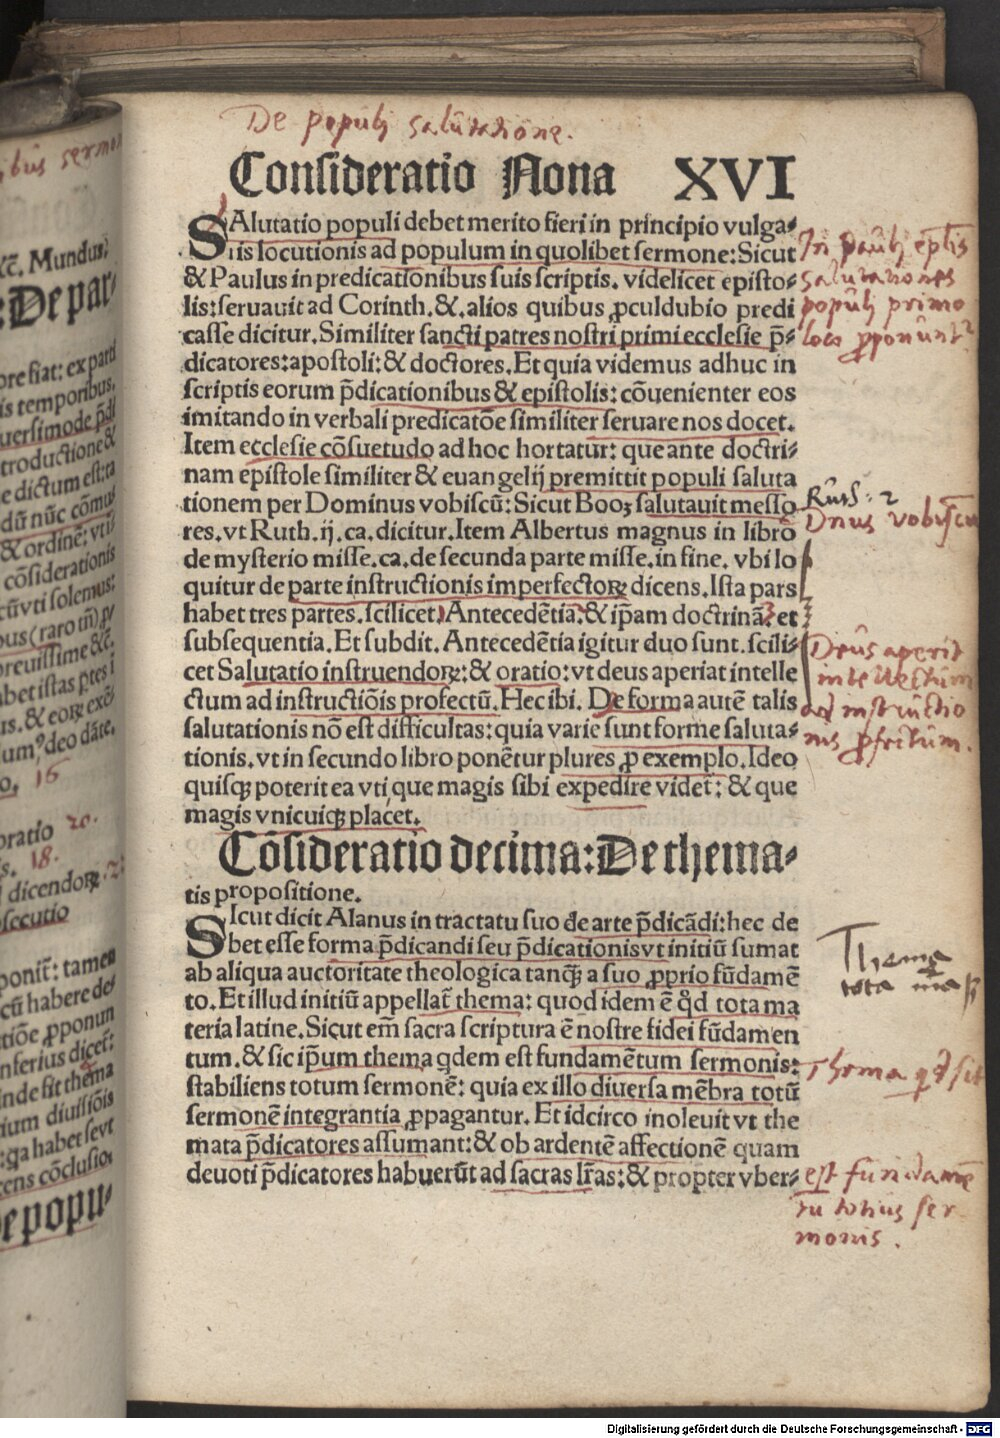 De populi salutatione.
Consideratio Nona XVI
SAlutatio populi debet merito fieri in principio vulga⸗
ris locutionis ad populum in quolibet sermone: Sicut
& Paulus in predicationibus suis scriptis. videlicet episto⸗
lis: seruauit ad Corinth. &. alios quibus ꝓculdubio predi
casse dicitur. Similiter sancti patres nostri primi ecclesie p̄⸗
dicatores: apostoli: & doctores. Et quia videmus adhuc in
scriptis eorum p̄dicationibus & epistolis: cōuenienter eos
imitando in verbali predicatōe similiter seruare nos docet.
Item ecclesie cōsuetudo ad hoc hortatur: que ante doctri⸗
nam epistole similiter & euangelij premittit populi saluta
tionem per Dominus vobiscū: Sicut Booz salutauit messo
res. vt Ruth. ij. ca. dicitur. Item Albertus magnus in libro
de mysterio misse. ca. de secunda parte misse. in fine. vbi lo
quitur de parte instructionis imperfectoꝝ dicens. Ista pars
habet tres partes. scilicet. Antecedētia. & ip̄am doctrinā: et
subsequentia. Et subdit. Antecedētia igitur duo sunt. scili⸗
cet Salutatio instruendoꝝ: & oratio: vt deus aperiat intelle
ctum ad instructiōis profectū. Hec ibi. De forma autē talis
salutationis nō est difficultas: quia varie sunt forme saluta⸗
tionis. vt in secundo libro ponētur plures ꝓ exemplo. Ideo
quisqꝫ poterit ea vti que magis sibi expedire videt̄: & que
magis vnicuiqꝫ placet.
Cōsideratio decima: De thema⸗
tis propositione.
SIcut dicit Alanus in tractatu suo de arte p̄dicādi: hec de
bet esse forma p̄dicandi seu p̄dicationis vt initiū sumat
ab aliqua auctoritate theologica tanqꝫ a suo ꝓprio fūdamē
to. Et illud initiū appellat̄ thema: quod idem ē qd̄ tota ma
teria latine. Sicut em̄ sacra scriptura ē nostre fidei fūdamen
tum. & sic ip̄um thema qdem est fundamētum sermonis:
stabiliens totum sermonē: quia ex illo diuersa mēbra totū
sermonē integrantia ꝓpagantur. Et idcirco inoleuit vt the
mata p̄dicatores assumant: & ob ardentē affectionē quam
deuoti p̄dicatores habuerūt ad sacras lr̄as: & propter vber⸗
In pauli ep̄lis
salutationes
populi primo
loco ꝓponunt̄
Ruth. 2
Dn̄us vobiscū
Deus aperit
intellectum
ad instructio
nis ꝓfectum.
Thema
tota ma
Thema qd sit
est fundamē
tu totius ser
monis.
Mundus:
De par⸗
ore fiat: ex parti
is temporibus.
troductione &
e dictum est: ta
dū nūc cōmu
& ordinē: vti
cōsiderationis
cūvti solemus:
breuissime &c.
habet istas ptes i
deo dāte.
16
oratio 20.
18.
dicendoꝝ
secutio
ponit̄: tamen
cū habere de⸗
tiōe ꝓponun
inferius dicet̄:
inde fit thema
rium diuisiōis
: qa habet seut
cens cōclusio⸗
De popu⸗
Digitalisierung gefördert durch die Deutsche Forschungsgemeinschaft - DFG